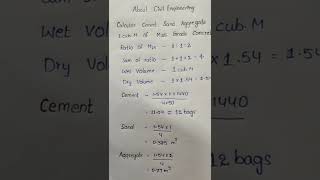 About Civil Engineering
Calculate Cement Sand Aggregate
1 cub.M of M25 Grade Concrete
Ratio of Mix - 1:1:2
Sum of ratio - 1+1+2 = 4
Wet Volume - 1 cub.M
Dry Volume - 1×1.54 = 1.54
Cement - 1.54×1×1440
4×50
= 12 bags
Sand - 1.54×1
4
= 0.385 m³
Aggregate - 1.54×2
4
= 0.77 m³
×1.54 = 1.5
1440
12 bags